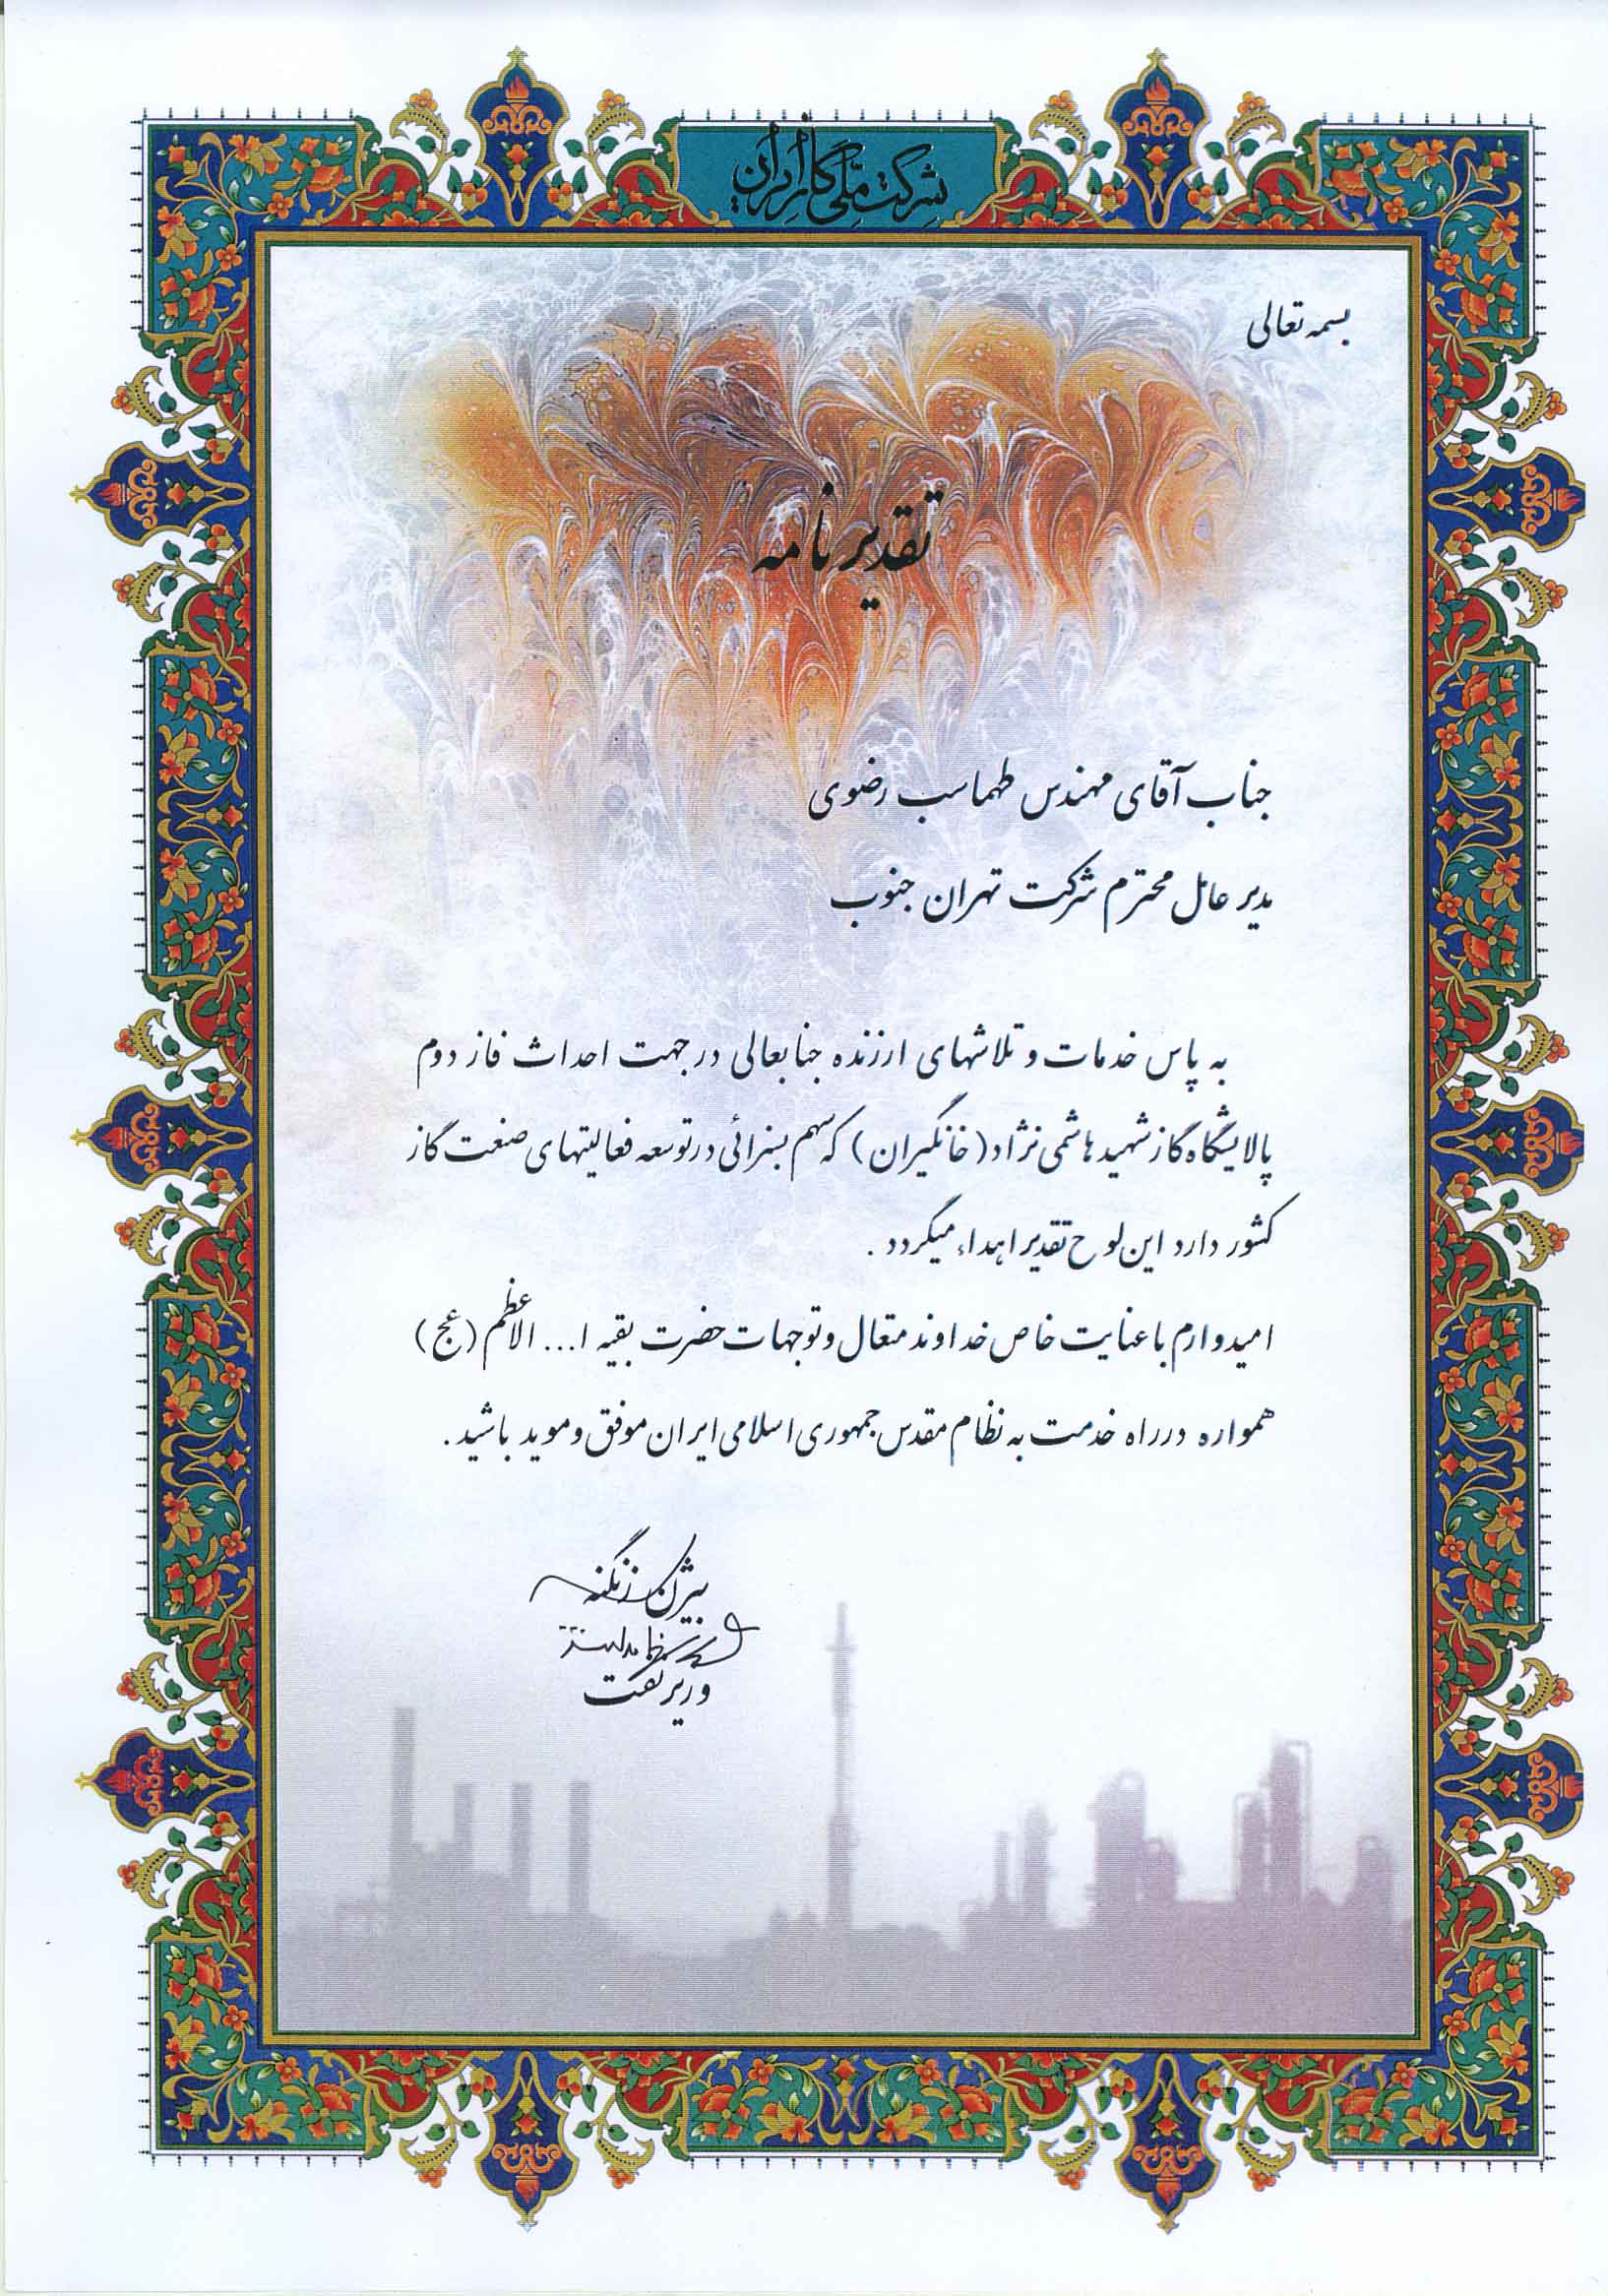 شرکت ملی گاز ایران
بسمه تعالی
تقدیر نامه
جناب آقای مهندس طهماسب رضوی
مدیر عامل محترم شرکت تهران جنوب
به پاس خدمات و تلاشهای ارزنده جنابعالی در جهت احداث فاز دوم
پالایشگاه گاز شهید هاشمی نژاد (خانگیران) که سهم بسزائی در توسعه فعالیتهای صنعت گاز
کشور دارد این لوح تقدیر اهداء میگردد .
امیدوارم با عنایت خاص خداوند متعال و توجهات حضرت بقیه ا... الاعظم (عج)
همواره در راه خدمت به نظام مقدس جمهوری اسلامی ایران موفق و موید باشید .
بیژن زنگنه
وزیر نفت